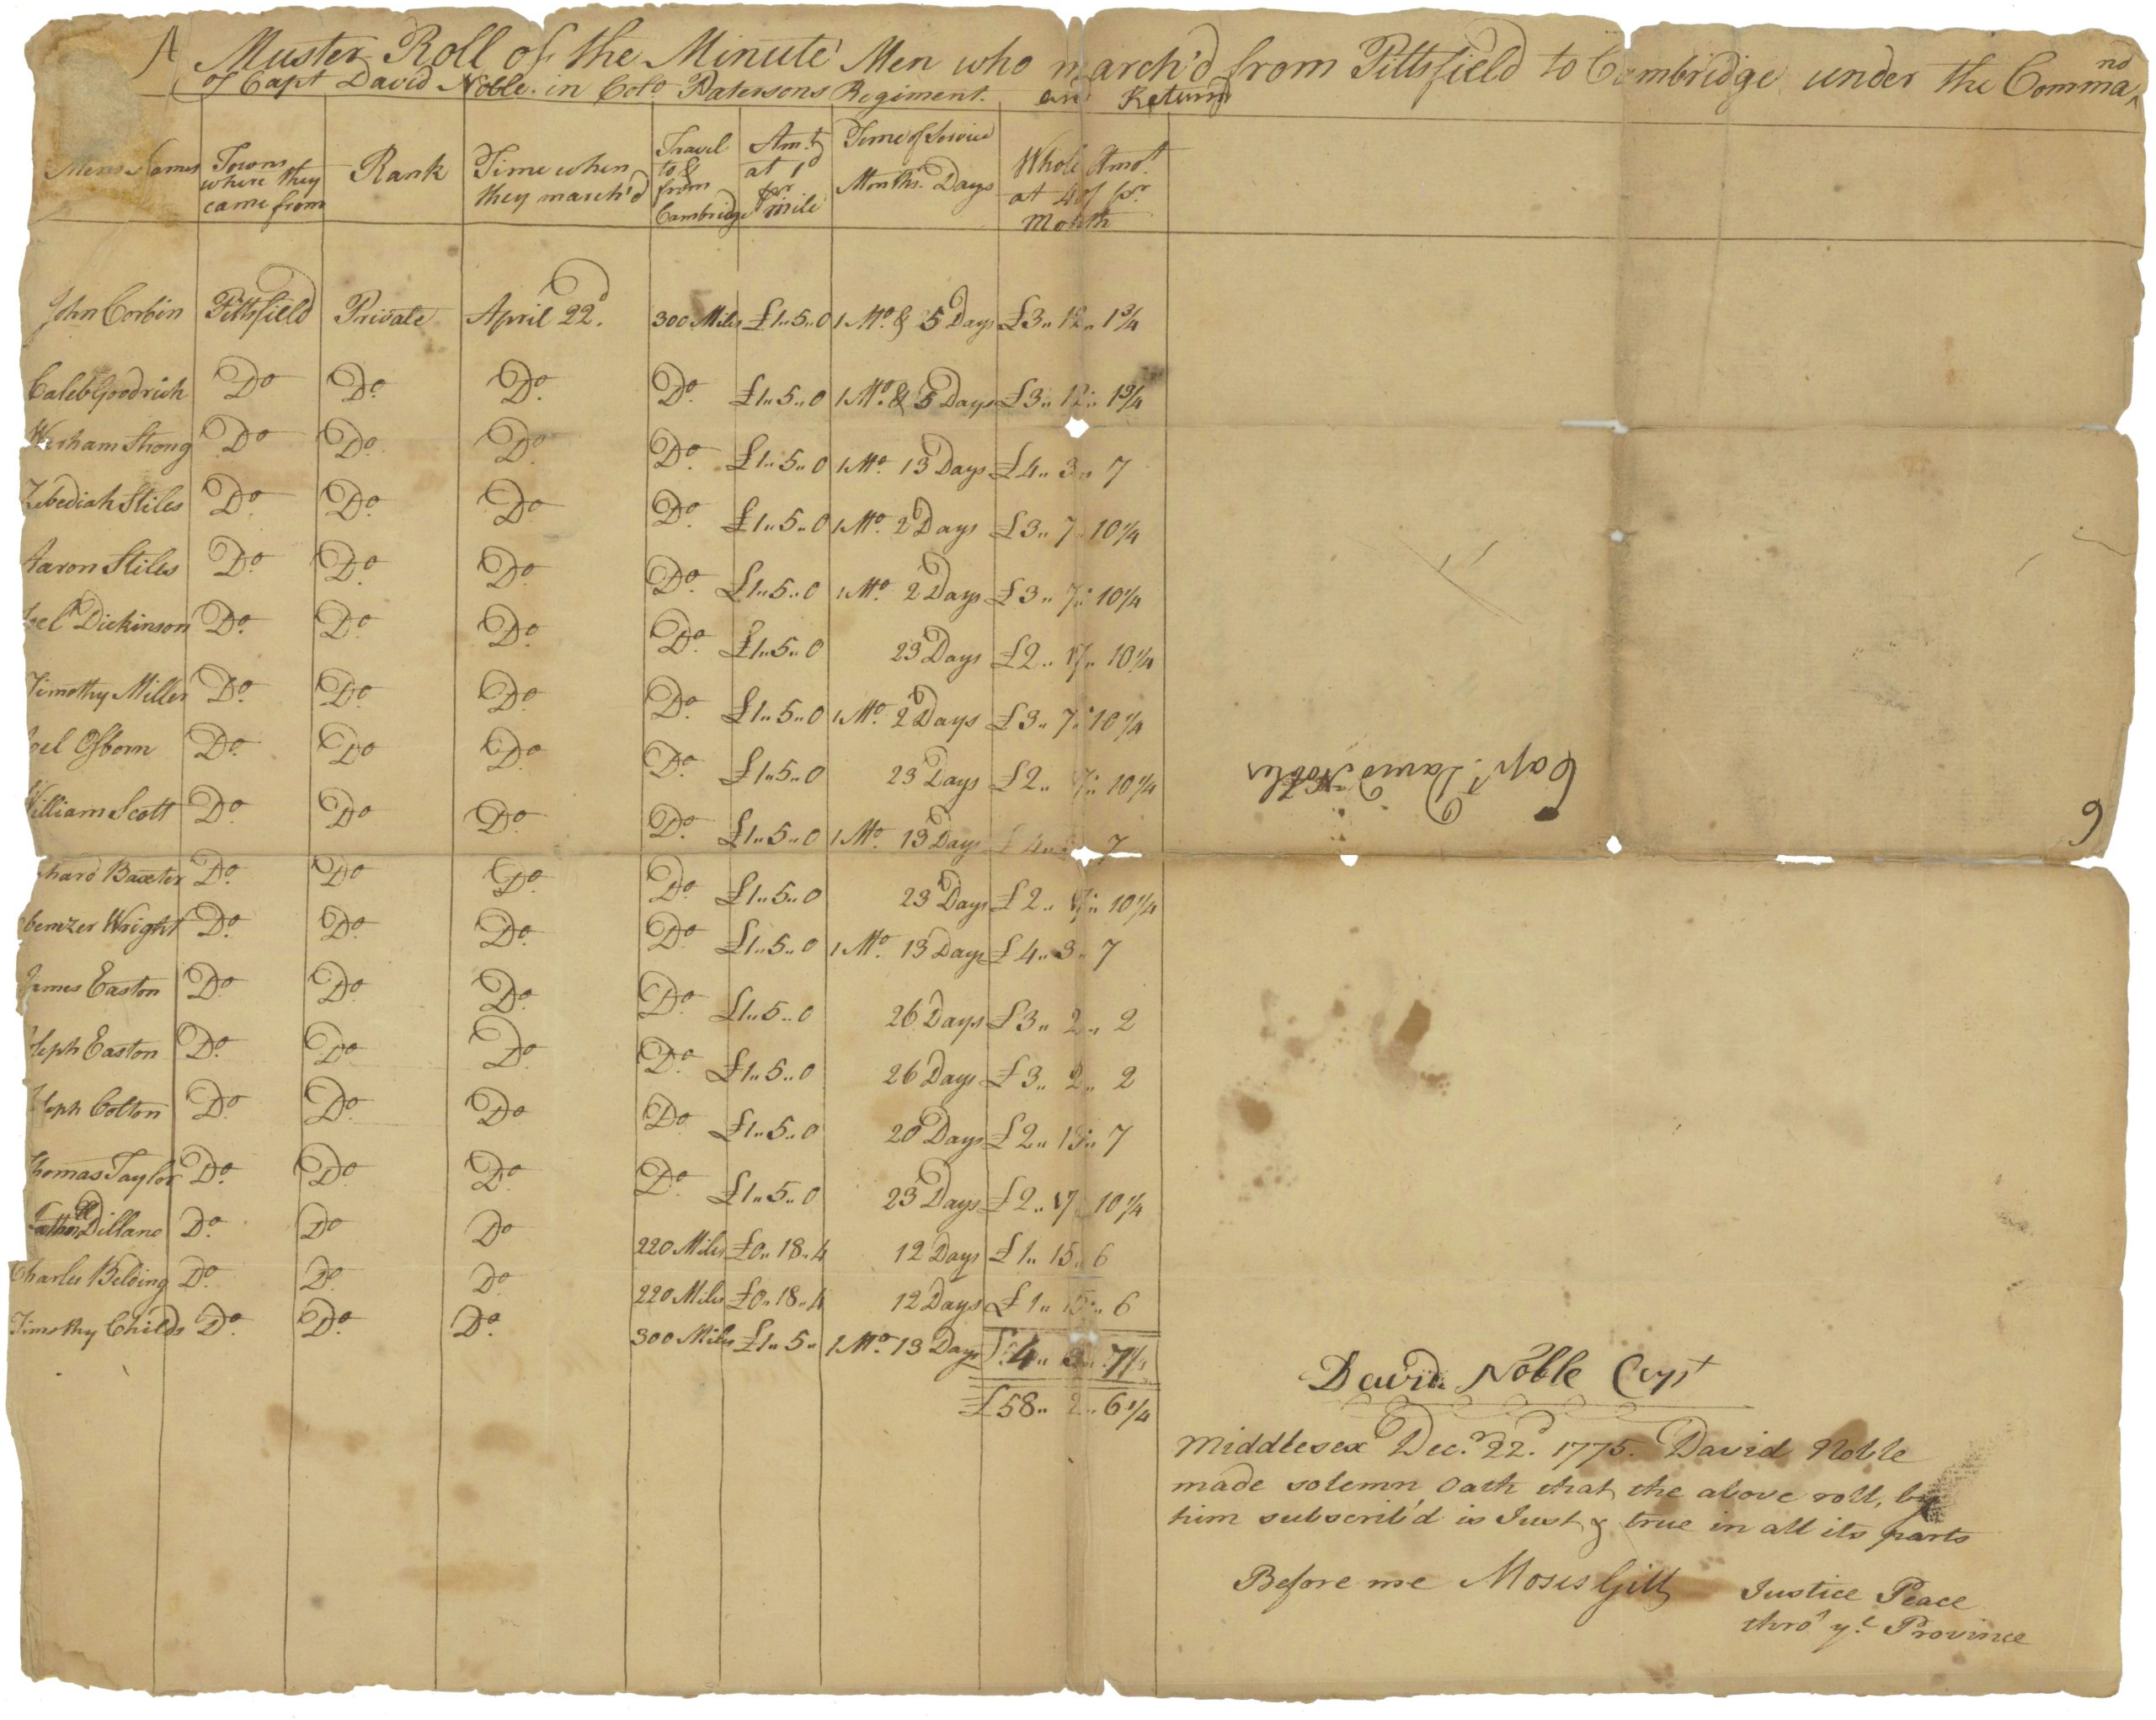 A Muster Roll of the Minute Men who march'd from Pittsfield to Cambridge under the Command
of Capt David Noble in Colo Patersons Regiment. and Return
Mens Names Towns where they came from Rank Time when they march'd Travel to & from Cambridge Amt at 1d pr mile Time of Service Months. Days Whole Amot at 40/ pr Month
John Corbin Pittsfield Private April 22d. 300 Miles £1..5..0 1 Mo. & 5 Days £3..12..1 3/4
Caleb Goodrich Do Do. Do. Do. £1..5..0 1 Mo. & 5 Days £3..12..1 3/4
Warham Strong Do Do. Do. Do. £1..5..0 1 Mo. 13 Days £4..3..7
Zebediah Stiles Do. Do. Do Do. £1..5..0 1 Mo. 2 Days £3..7..10 1/4
Aaron Stiles Do. Do. Do. Do. £1..5..0 1 Mo. 2 Days £3..7..10 1/4
Dickinson Do. Do. Do. Do. £1..5..0 23 Days £2..17..10 1/4
Timothy Miller Do. Do. Do. Do. £1..5..0 1 Mo. 2 Days £3..7..10 1/4
oel Osborn Do. Do Do. Do. £1..5..0 23 Days £2..7..10 1/4
William Scott Do. Do Do. Do. £1..5..0 1 Mo. 13 Days £4.. 7
chard Baxter Do. Do Do. Do. £1..5..0 23 Days £2..17..10 1/4
benezer Wright Do. Do. Do. Do £1..5..0 1 Mo. 13 Days £4..3..7
James Easton Do. Do. Do. Do. £1..5..0 26 Days £3..2..2
seph Easton Do. Do Do. Do. £1..5..0 26 Days £3..2..2
seph Colton Do. Do. Do Do. £1..5..0 20 Days £2..13..7
Thomas Taylor Do. Do. Do. Do. £1..5..0 23 Days £2..17..10 1/4
Dillano Do. Do Do 220 Miles £0..18..4 12 Days £1..15..6
Charles Belding Do. Do. Do. 220 Miles £0..18..4 12 Days £1..15..6
Timothy Childs Do. Do. Do. 300 Miles £1..5.. 1 Mo. 13 Days £4..3..7 1/4
£58..2..6 1/4
Capt. David Nobles
6
David Noble Capt
Middlesex Decr 22d. 1775. David Noble
made solemn Oath that the above roll, by
him subscrib'd is Just & true in all its parts
Before me Moses Gill Justice Peace
thro' ye Province